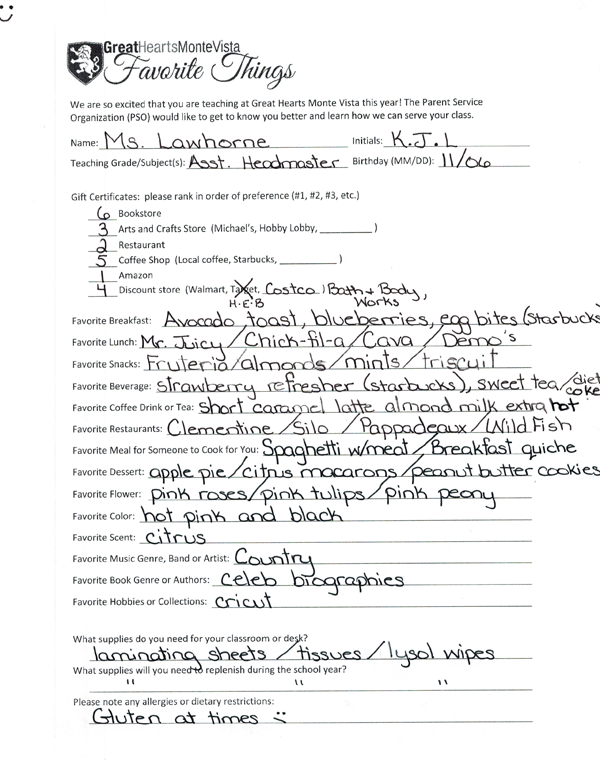 GreatHeartsMonteVista
Favorite Things
We are so excited that you are teaching at Great Hearts Monte Vista this year! The Parent Service
Organization (PSO) would like to get to know you better and learn how we can serve your class.
Name: Ms. Lawhorne Initials: K.J.L
Teaching Grade/Subject(s): Asst. Headmaster Birthday (MM/DD): 11/06
Gift Certificates: please rank in order of preference (#1, #2, #3, etc.)
6 Bookstore
3 Arts and Crafts Store (Michael's, Hobby Lobby, __________ )
2 Restaurant
5 Coffee Shop (Local coffee, Starbucks, ___________ )
1 Amazon
4 Discount store (Walmart, Target, Costco ) Bath + Body,
H·E·B Works
Favorite Breakfast: Avocado toast, blueberries, egg bites (Starbucks
Favorite Lunch: Mr. Juicy / Chick-fil-a / Cava / Demo's
Favorite Snacks: Fruteria/almonds/mints/triscuit
Favorite Beverage: strawberry refresher (starbucks), sweet tea/diet
coke
Favorite Coffee Drink or Tea: short caramel latte almond milk extra hot
Favorite Restaurants: Clementine /Silo /Pappadeaux/Wild Fish
Favorite Meal for Someone to Cook for You: Spaghetti w/meat /Breakfast quiche
Favorite Dessert: apple pie/citrus macarons/peanut butter cookies
Favorite Flower: pink roses/pink tulips/pink peony
Favorite Color: hot pink and black
Favorite Scent: citrus
Favorite Music Genre, Band or Artist: Country
Favorite Book Genre or Authors: celeb biographies
Favorite Hobbies or Collections: cricut
What supplies do you need for your classroom or desk?
laminating sheets /tissues /lysol wipes
What supplies will you need to replenish during the school year?
" " "
Please note any allergies or dietary restrictions:
Gluten at times :(